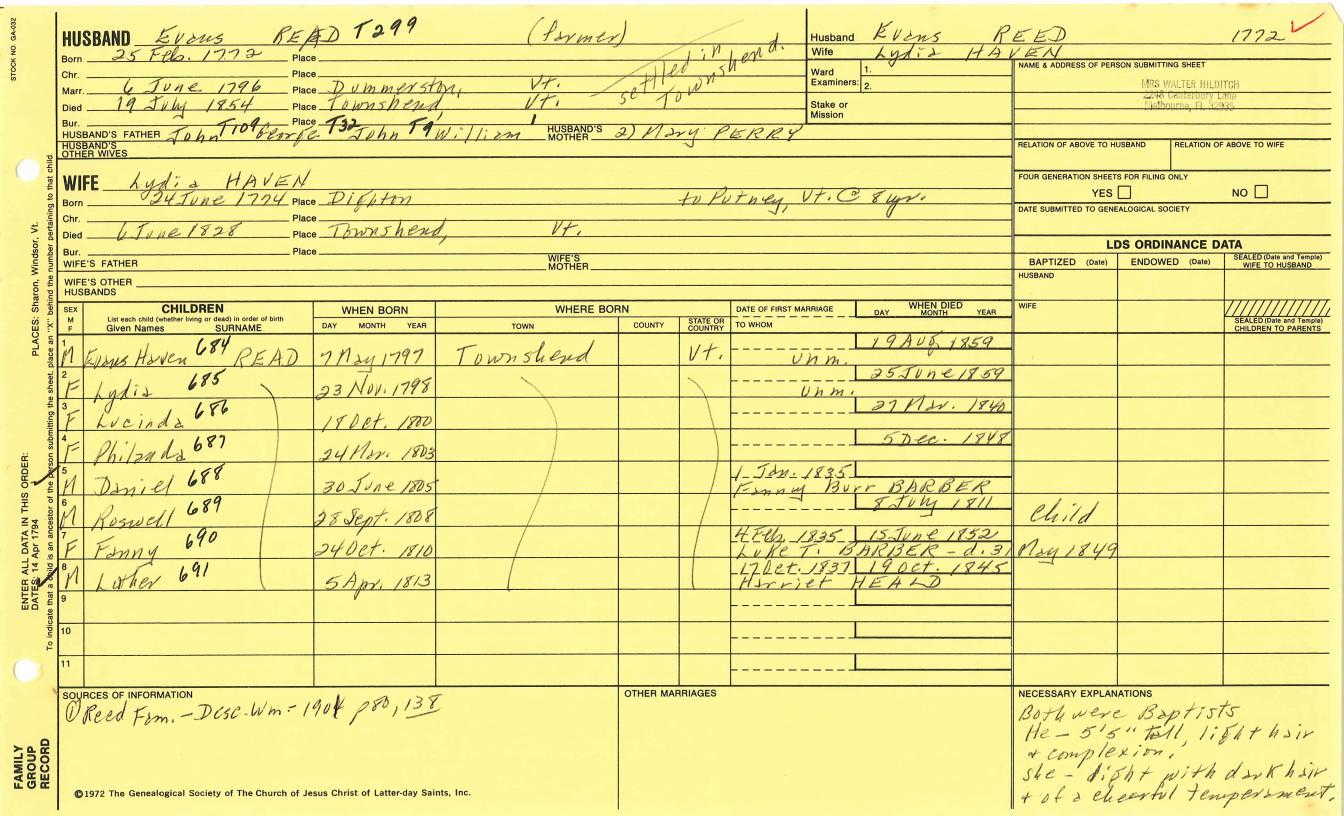 STOCK NO. GA-032
HUSBAND Evans READ T299 (farmer)
Born 25 Feb. 1772 Place
Chr. Place
Marr. 6 June 1796 Place Dummerston, Vt.
Died 19 July 1854 Place Townshend, Vt.
settled in Townshend.
Bur. Place
HUSBAND'S FATHER John T109 George T32 John T9 William HUSBAND'S MOTHER 2) Mary PERRY
HUSBAND'S OTHER WIVES
Husband Evans REED 1772
Wife Lydia HAVEN
Ward Examiners: 1.
2.
Stake or Mission
NAME & ADDRESS OF PERSON SUBMITTING SHEET
MRS WALTER HILDITCH
Canterbury Lane
Melbourne, Fl. 32935
RELATION OF ABOVE TO HUSBAND RELATION OF ABOVE TO WIFE
FOUR GENERATION SHEETS FOR FILING ONLY
YES NO
DATE SUBMITTED TO GENEALOGICAL SOCIETY
WIFE Lydia HAVEN
Born 24 June 1774 Place Dighton to Putney, Vt. @ 8 yr.
Chr. Place
Died 6 June 1828 Place Townshend, Vt.
Bur. Place
WIFE'S FATHER WIFE'S MOTHER
WIFE'S OTHER HUSBANDS
LDS ORDINANCE DATA
BAPTIZED (Date) ENDOWED (Date) SEALED (Date and Temple) WIFE TO HUSBAND
HUSBAND
WIFE
SEALED (Date and Temple) CHILDREN TO PARENTS
SEX M F CHILDREN List each child (whether living or dead) in order of birth Given Names SURNAME WHEN BORN DAY MONTH YEAR WHERE BORN TOWN COUNTY STATE OR COUNTRY DATE OF FIRST MARRIAGE TO WHOM WHEN DIED DAY MONTH YEAR
1 M Evans Haven 684 READ 7 May 1797 Townshend Vt. unm. 19 Aug 1859
2 F Lydia 685 23 Nov. 1798 unm. 25 June 1859
3 F Lucinda 686 18 Oct. 1800 27 Mar. 1840
4 F Philinda 687 24 Mar. 1803 5 Dec. 1848
5 M Daniel 688 30 June 1805 1 Jan. 1835 Fanny Burr BARBER
6 M Roswell 689 28 Sept. 1808 8 July 1811 Child
7 F Fanny 690 24 Oct. 1810 4 Feb. 1835 15 June 1852 Luke T. BARBER - d. 31 May 1849
8 M Luther 691 5 Apr. 1813 17 Oct. 1837 19 Oct. 1845 Harriet HEALD
9
10
11
SOURCES OF INFORMATION
① Reed Fam. - Desc. Wm - 1904 p80, 138
OTHER MARRIAGES
NECESSARY EXPLANATIONS
Both were Baptists
He - 5'5" tall, light hair
+ complexion.
she - light with dark hair
+ of a cheerful temperament.
©1972 The Genealogical Society of The Church of Jesus Christ of Latter-day Saints, Inc.
FAMILY GROUP RECORD
ENTER ALL DATA IN THIS ORDER:
DATES: 14 Apr 1794 PLACES: Sharon, Windsor, Vt.
To indicate that a child is an ancestor of the person submitting the sheet, place an "X" behind the number pertaining to that child.